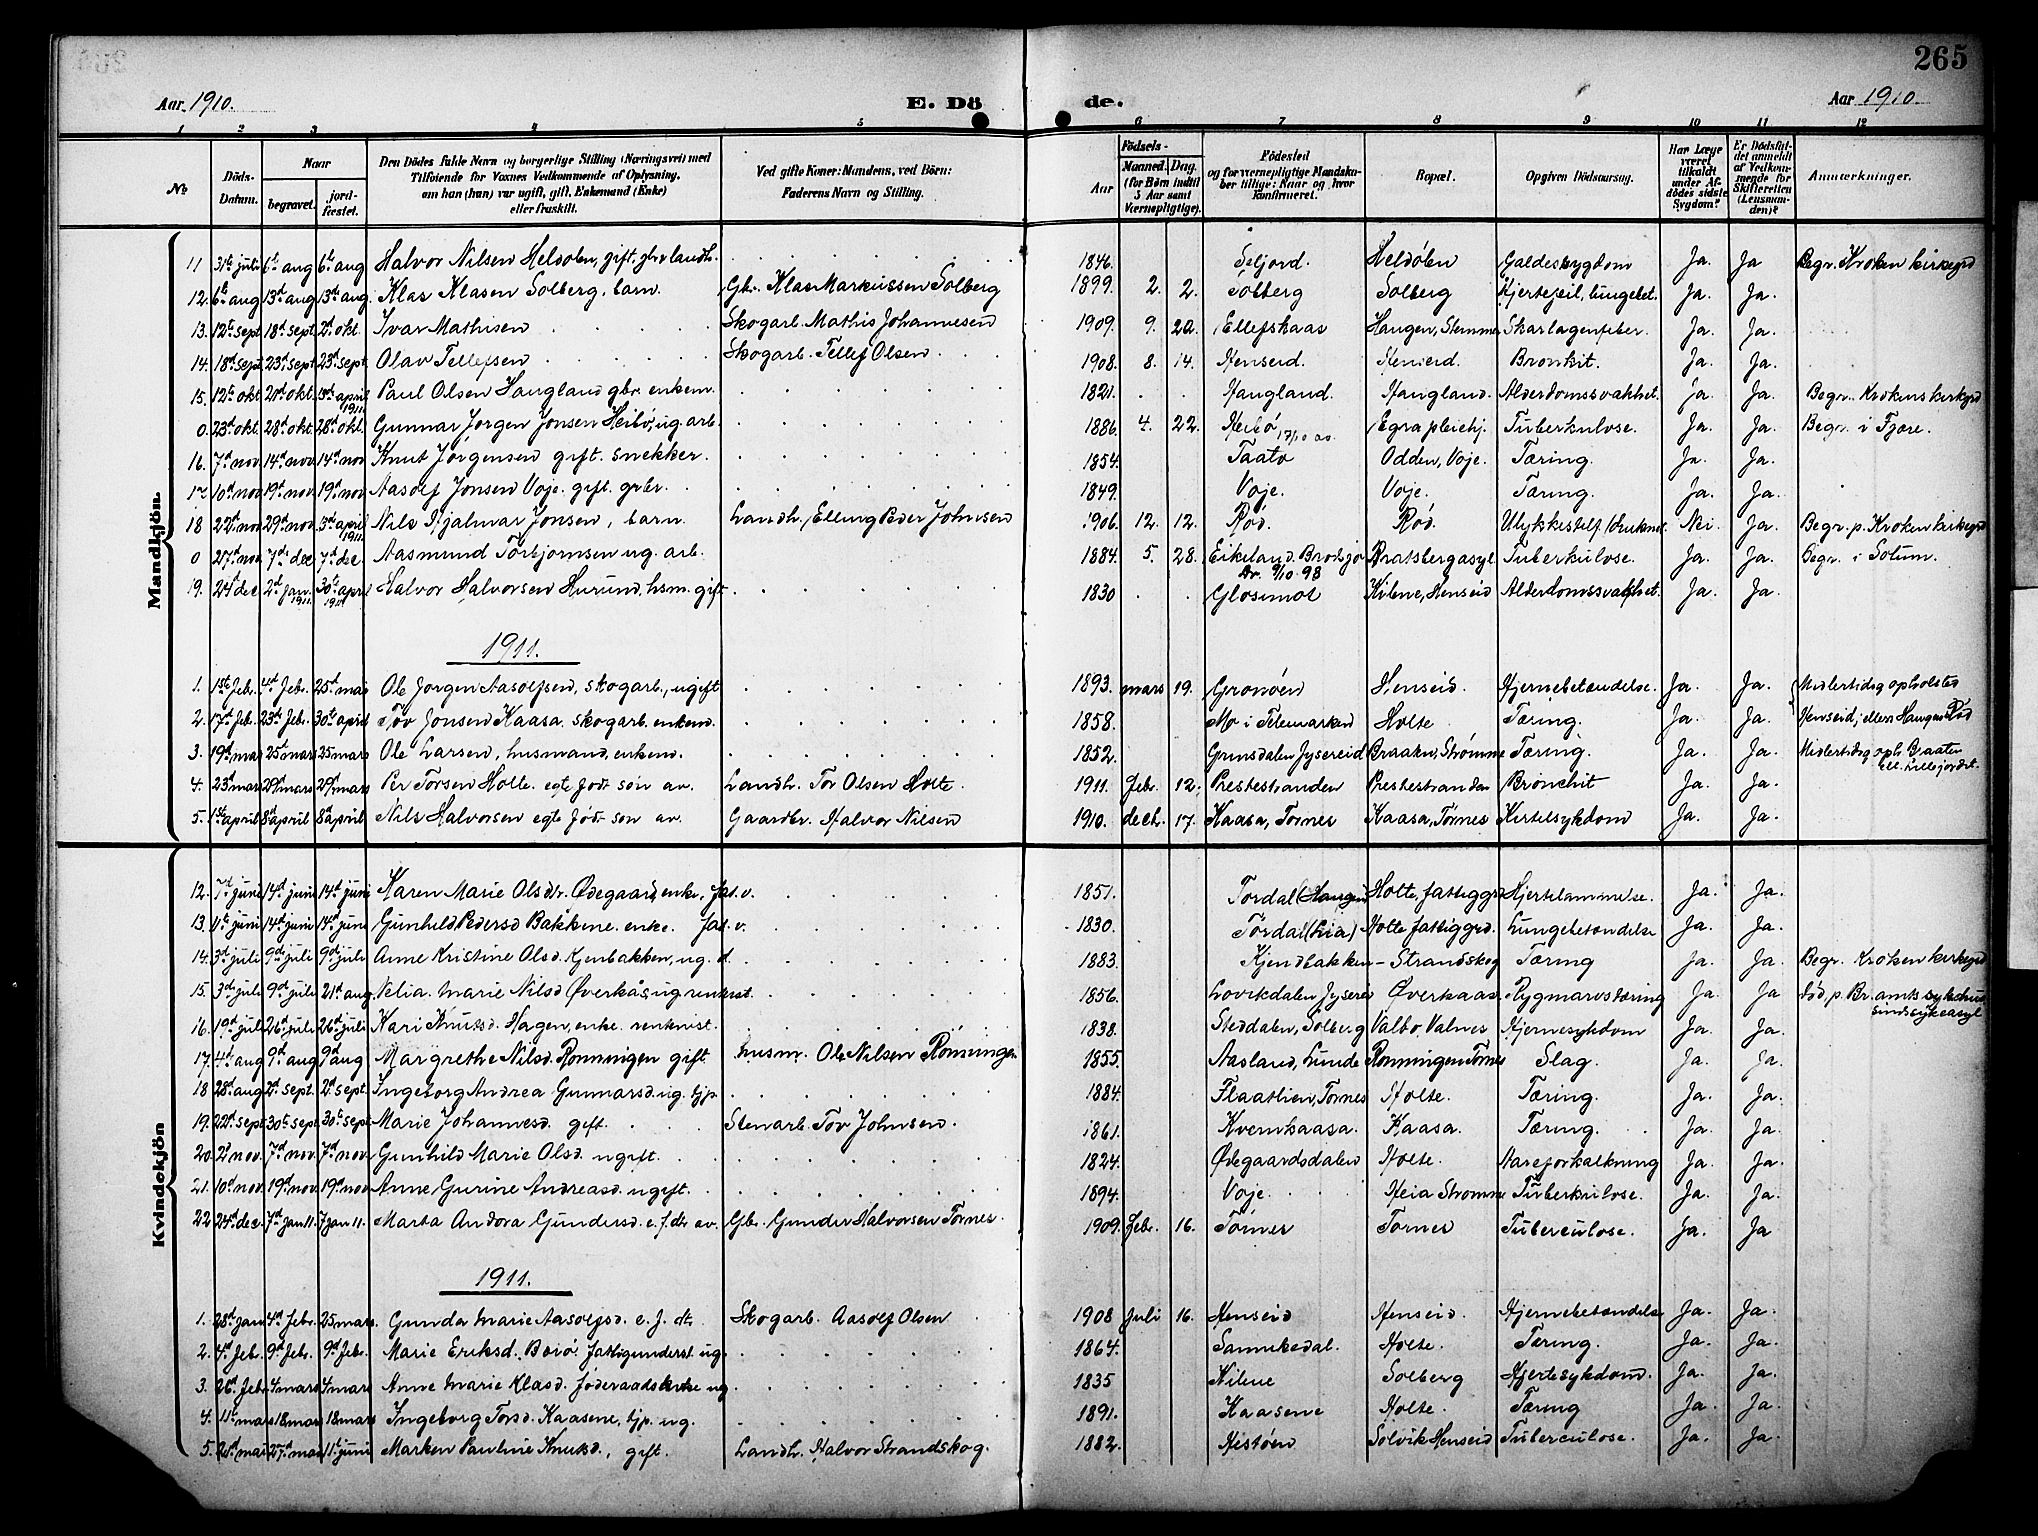 265
Aar 1910. E. Dö de. Aar 1910
1 2 3 4 5 6 7 8 9 10 11 12
No Döds-Datum. Naar begravet. jord-fæstet. Den Dödes fulde Navn og borgerlige Stilling (Næringsvei) med Tilføiende for Voxnes Vedkommende af Oplysning, om han (hun) var ugift, gift, Enkemand (Enke) eller fraskilt. Ved gifte Koner: Mandens, ved Börn: Faderens Navn og Stilling. Födsels- Aar Maaned. Dag. (for Børn indtil 5 Aar samt Værnepligtige). Födested og for værnepligtige Mandskaber tillige: Naar og hvor konfirmeret. Bopæl. Opgiven Dödsaarsag. Har Læge været tilkaldt under Afdödes sidste Sygdom? Er Dödsfaldet anmeldt af Vedkommende for Skifteretten (Lensmanden)? Anmærkninger.
Mandkjön.
11 31te juli 6te aug 6te aug Halvor Nilsen Heldølen, gift, gbr. landh. 1846. Seljord. Heldølen Galdesygdom Ja. Ja Begr. Kroken kirkegd
12. 6te aug 13de aug 13de aug. Klas Klasen Solberg, barn. Gbr. Klas Markussen Solberg 1899. 2. 2. Solberg Solberg Hjertefeil, lungebet. Ja. Ja.
13. 12te sept 18de sept 2d okt. Ivar Mathisen Skogarb. Mathis Johannesen 1909. 9. 20. Ellefskaas Haugen, Stemme Skarlagenfeber. Ja. Ja.
14. 18de sept 23de sept 23de sept. Olav Tellefsen Skogarb. Tellef Olsen 1908. 8. 14. Henseid. Henseid. Bronkit. Ja. Ja.
15. 12te okt 21de okt. 3de april 1911. Paul Olsen Haugland gbr. enkem. 1821. Haugland. Haugland. Alderdomssvakhet. Ja. Ja. Begr. Krokens kirkegd
0. 23d okt. 28d okt. 28d okt. Gunnar Jørgen Jonsen Heibø, ug. arb. 1886. 4. 22. Heibø Egra pleiehj. Tuberkulose. Ja. Ja. Begr. i Fjære.
16. 7d nov 14d nov 14d nov Knut Jørgensen gift. snekker. 1854. Taatø Odden, Voje. Tæring. Ja. Ja.
17 10d nov 19d nov. 19d nov. Aasolf Jonsen Voje. gift. gbr. 1849. Voje. Voje. Tæring. Ja. Ja.
18 22d nov 29d nov. 3d april 1911. Nils Hjalmar Jonsen, barn. Landh. Elling Peder Johnsen 1906. 12. 12. Rød. Rød. Ulykkestilf. (druknet Nei. Ja. Begr. p. Kroken kirkegd
0 27d nov. 7de dec 7de dec. Aasmund Torbjørnsen ug. arb. 1884. 5. 28. Eikeland. Brødsjø kr. 9/10 98 Bratsbergasyl. Tuberkulose. Ja. Ja. Begr. i Solum.
19. 24d dec. 2d jan. 1911. 30te april 1911 Halvor Halvorsen Hurund, hsm. gift 1830. Glosimot Kilene, Henseid Alderdomssvakhet. Ja. Ja.
1911.
1. 1ste febr. 4d febr. 25d mars Ole Jørgen Aasolfsen, skogarb., ugift 1893. mars 19. Grønøen Henseid. Hjernebetændelse. Ja. Ja. Midlertidig opholdsted
2. 17d febr. 23de febr. 30te april Tov Jonsen Kaasa. skogarb. enkem. 1858. Mo i Telemarken Holte. Tæring. Ja. Ja. Henseid, ellers Haugen Rød
3. 19d mars 25d mars 25 mars Ole Larsen, husmand, enkem. 1852. Grimsdalen Jysereid Braaten, Strømme Tæring. Ja. Ja. Midlertidig oph. Braaten Ell. Lillejordet.
4. 23d mars 29d mars 29d mars Per Torsen Holte. egte født søn av. Landh. Tor Olsen Holte. 1911. febr. 12. Prestestranden Prestestranden Bronchit Ja. Ja.
5. 1ste april 8d april 8d april. Nils Halvorsen egte født søn av. Gaardbr. Halvor Nilsen 1910. decbr. 17. Kaasa, Tørnes Kaasa, Tørnes Kirtelsykdom Ja. Ja.
Kvindekjön
12. 7d juni 14d juni 14d juni Karen Marie Olsdtr. Ødegaard, enke. fat. v. 1851. Tordal (Haugen Holte, fattiggrd Hjertelammelse. Ja. Ja.
13. 11te juni 14d juni 14d juni Gunhild Pedersd Bakkene. enke. fat. v. 1830. Tordal (Lia) Holte fattiggrd. Lungebetændelse Ja. Ja.
14. 3d juli 9de juli 9de juli Anne Kristine Olsd. Kjenbakken, ug. d. 1883. Kjendbakken - Strandskog Tæring Ja. Ja. Begr. Kroken kirkegd
15. 3d juli 9d juli 21d aug. Nelia. Marie Nilsd Øverkås ug. underst. 1856. Lovikdalen Jyserei Øverkaas. Rygmarvstæring Ja Ja død. p. Br. amts sykehus sindssykeasyl
16. 19d juli 26d juli 26d juli Kari Knutsd. Hagen, enke. rentenist. 1838. Steddalen, Solberg Valbø. Valnes Hjernesykdom Ja. Ja.
17. 4d aug 9d aug 9d aug Margrethe Nilsd. Rønningen gift. husm. Ole Nilsen Rønningen 1855. Aasland, Lunde Rønningen Tørnes Slag. Ja. Ja.
18 28d aug 2d sept. 2d sept. Ingeborg Andrea Gunnarsd. ug. tjp. 1884. Flaatlien, Tørnes Holte. Tæring. Ja. Ja.
19. 22d sept 30te sept 30te sept Marie Johannesd. gift. Stenarb. Tov Johnsen. 1861. Kvernkaasa. Kaasa. Tæring. Ja. Ja.
20. 2d nov. 7d nov. 7d nov. Gunhild Marie Olsd. ugift. 1824. Ødegaardsdalen Holte. Aareforkalkning Ja. Ja.
21. 10d nov. 19d nov. 19d nov Anne Gurine Andreasd. ugift. 1894. Voje. Heia Strømme Tuberkulose. Ja. Ja.
22 24d dec. 7d jan 11. 7 jan 11. Marta Andora Gundersd. e. f. dtr. av. Gbr. Gunder Halvorsen Tørnes. 1909. febr. 16. Tørnes Tørnes Tuberculose. Ja. Ja
1911.
1. 28d jan 4d febr. 25 mars Gunda Marie Aasolfsd. e. f. dtr. Skogarb. Aasolf Olsen 1908 juli 16. Henseid Henseid. Hjernebetændelse Ja. Ja.
2. 4d febr. 9d febr. 9d febr. Marie Eriksd. Boiø. fattigunderst. ug. 1864. Sannikedal. Holte. Tæring. Ja. Ja.
3. 26d febr 4 mars 4 mars Anne Marie Klasd. føderaadskvke ug. 1835 Kilene Solberg Hjertesykdom. Ja. Ja.
4. 11te mars 18 mars 18 mars Ingeborg Torsd. Kaasene, tjp. ug. 1891. Kaasene Holte. Tæring Ja. Ja.
5. 20d mars 27d mars 11te juni Marken Pauline Knutsd., gift. Landh. Halvor Strandskog. 1882. Kistøen Solvik Henseid Tuberculose. Ja. Ja.